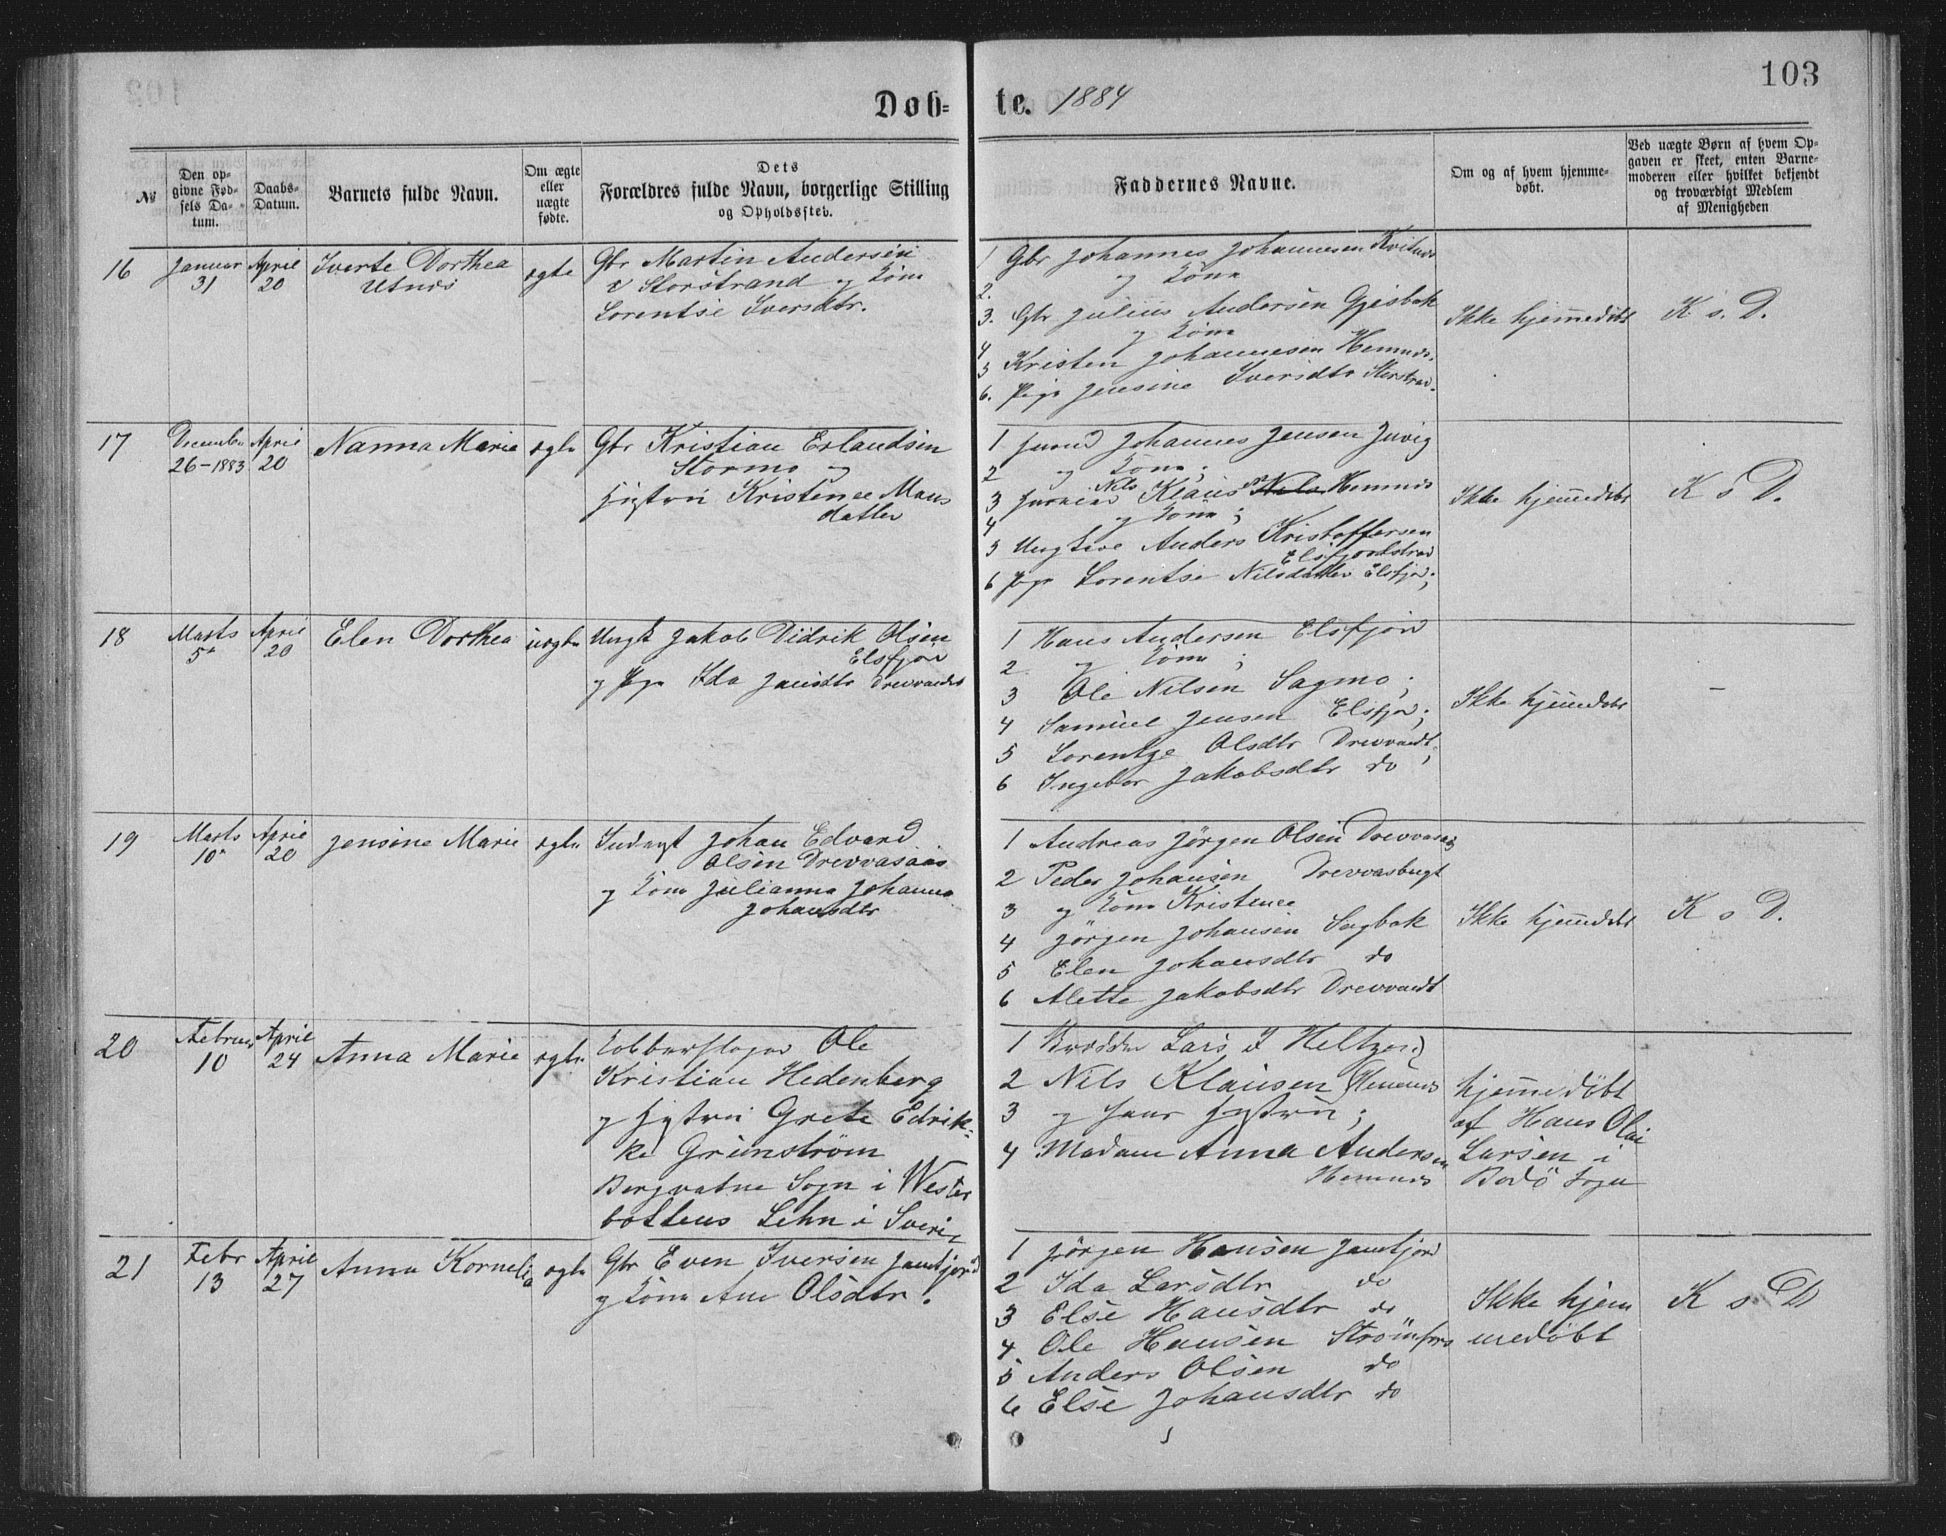 103
Døb-te. 1884
№
Den opgivne Fødsels Datum.
Daabs-Datum.
Barnets fulde Navn.
Om ægte eller uægte fødte.
Dets Forældres fulde Navn, borgerlige Stilling og Opholdssted.
Faddernes Navne.
Om og af hvem hjemmedøbt.
Ved uægte Børn af hvem Opgaven er skeet, enten Barnemoderen eller hvilket bekjendt og troværdigt Medlem af Menigheden
16
Januar 31
April 20
Iverte Dorthea
Utnes
ægte
Gbr Martin Andersen
Storstrand og Kone
Lorentse Iversdtr.
1 Gbr Johannes Johannesen
2. og Kone
3. Gbr Julius Andersen Gjesbak
4 og Kone
5 Kristen Johannesen Hemnes.
6. Pige Jensine Iversdtr
Ikke hjemmedøbt
K s. D.
17
December 26-1883
April 20
Nanna Marie
ægte
Gbr Kristian Erlandsen
Stormo og
Hustru Kristense Mans
datter
1 Johannes Jensen Juvig
2 og Kone;
3 Nils Klaus Hemnes
4 og Kone;
5 Ungkar Anders Kristoffersen
Elsfjordstrand
6 Pige Lorentse Nilsdatter Elsfjor;
Ikke hjemmedøbt
K s D.
18
Marts 5
April 20
Elen Dorthea
uægte
Ungk Jakob Didrik Olsen
Elsfjor
og Pige Ida Jansdtr Drevvandet
1 Hans Andersen Elsfjor
2 og Kone;
3 Ole Nilsen Sagmo;
4 Samuel Jensen Elsfjor;
5 Lorentze Olsdtr Drevvandt;
6 Ingebor Jakobsdtr do
Ikke hjemmedøbt
—
19
Marts 10
April 20
Jensine Marie
ægte
Inderst Johan Edvard
Olsen Drevvasaas
og Kone Julianna Johanna
Johansdtr
1 Andreas Jørgen Olsen
2 Peder Johansen Drevvasbugt
3 og Kone Kristense
4 Jørgen Johansen Sagbak
5 Elen Johansdtr do
6 Alette Jakobsdtr Drevvandt
Ikke hjemmedøbt
K s D.
20
Februar 10
April 24
Anna Marie
ægte
Kobberslager Ole
Kristian Hedenberg
og Hustru Grete Edrik-
ke Grünström
Bergvatne Sogn i Wester
bottens Lehn i Sveri
1 Lars J Heltzen
2 Nils Klausen Hemnes
3 og hans Hustru;
4 Madam Anna Andersen
Hemnes
hjemmedøbt
af Hans Olai
Larsen i
Bodø Sogn
21
Febr 13
April 27
Anna Kornelia
ægte
Gbr Even Iversen
og Kone Ane Olsdtr.
1 Jørgen Hansen
2 Ida Larsdtr do
3 Else Hansdtr do
4. Ole Hansen Strömfors
5 Anders Olsen do
6 Else Johansdtr do
Ikke hjem
medøbt
K s D